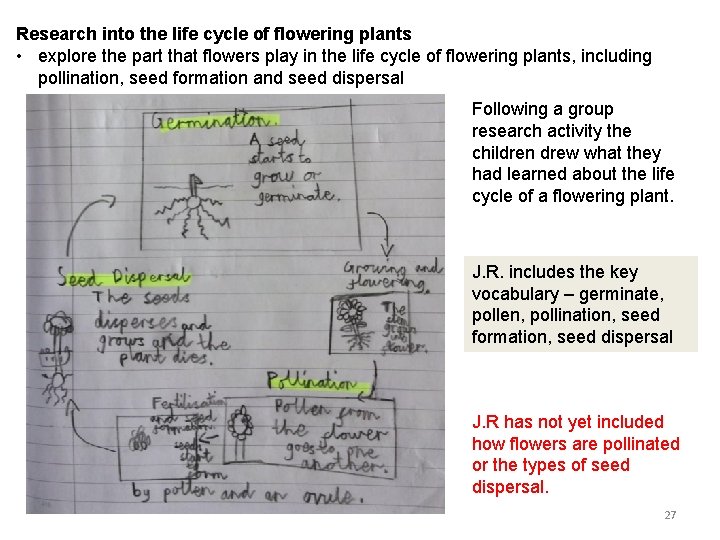 Research into the life cycle of flowering plants
• explore the part that flowers play in the life cycle of flowering plants, including
pollination, seed formation and seed dispersal
Germination.
A seed
starts to
grow or
germinate.
Growing and
flowering.
The
flower.
Pollination
Pollen from
the flower
goes to one
another.
Fertilisation
and seed
formation.
seeds
start
to
form
by pollen and an ovule.
Seed Dispersal
The seeds
disperses and
grows and the
plant dies.
Following a group
research activity the
children drew what they
had learned about the life
cycle of a flowering plant.
J.R. includes the key
vocabulary – germinate,
pollen, pollination, seed
formation, seed dispersal
J.R has not yet included
how flowers are pollinated
or the types of seed
dispersal.
27